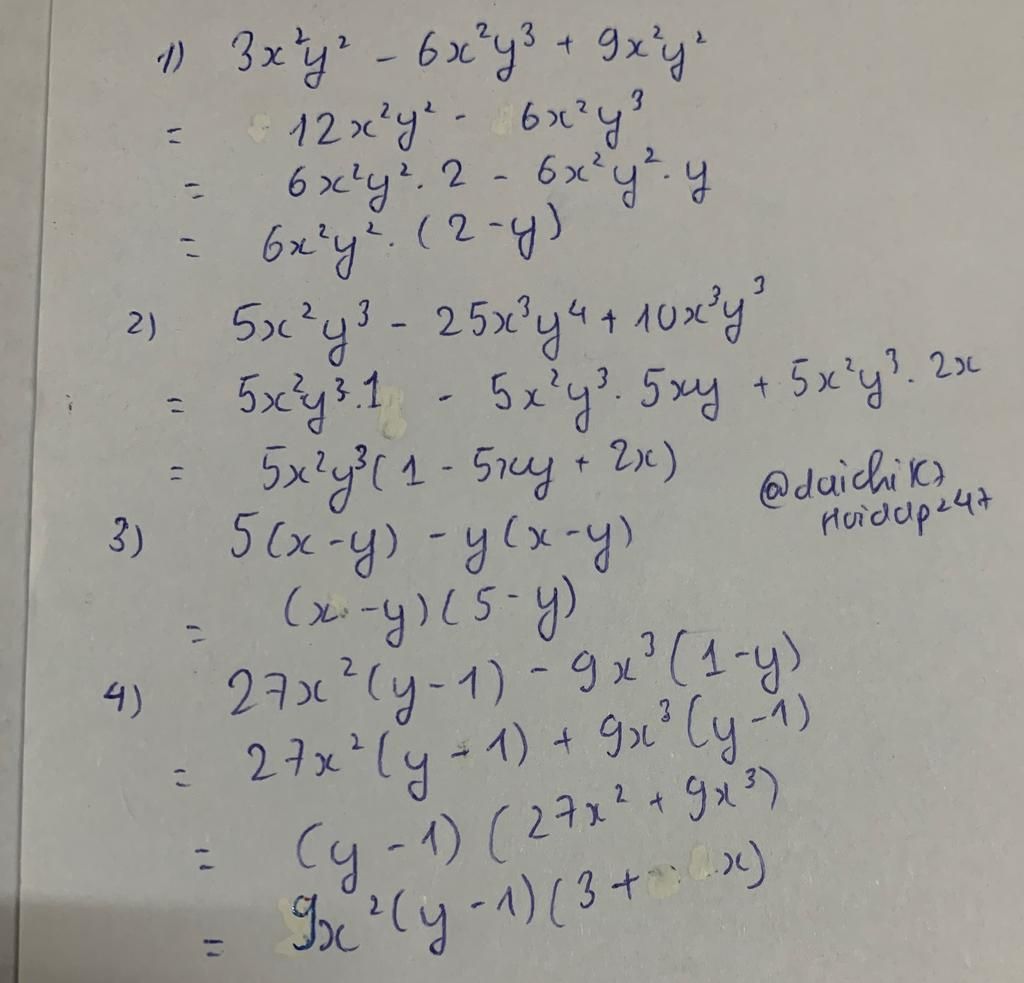 1) 3x²y² - 6x²y³ + 9x²y²
= 12x²y² - 6x²y³
= 6x²y². 2 - 6x²y². y
= 6x²y². (2-y)
2) 5x²y³ - 25x³y⁴ + 10x³y³
= 5x²y³.1 - 5x²y³. 5xy + 5x²y³. 2x
= 5x²y³(1 - 5xy + 2x)
@daichik7
Hoidap247
3) 5(x-y) - y(x-y)
= (x-y)(5-y)
4) 27x²(y-1) - 9x³(1-y)
= 27x²(y-1) + 9x³(y-1)
= (y-1)(27x² + 9x³)
= 9x²(y-1)(3+x)